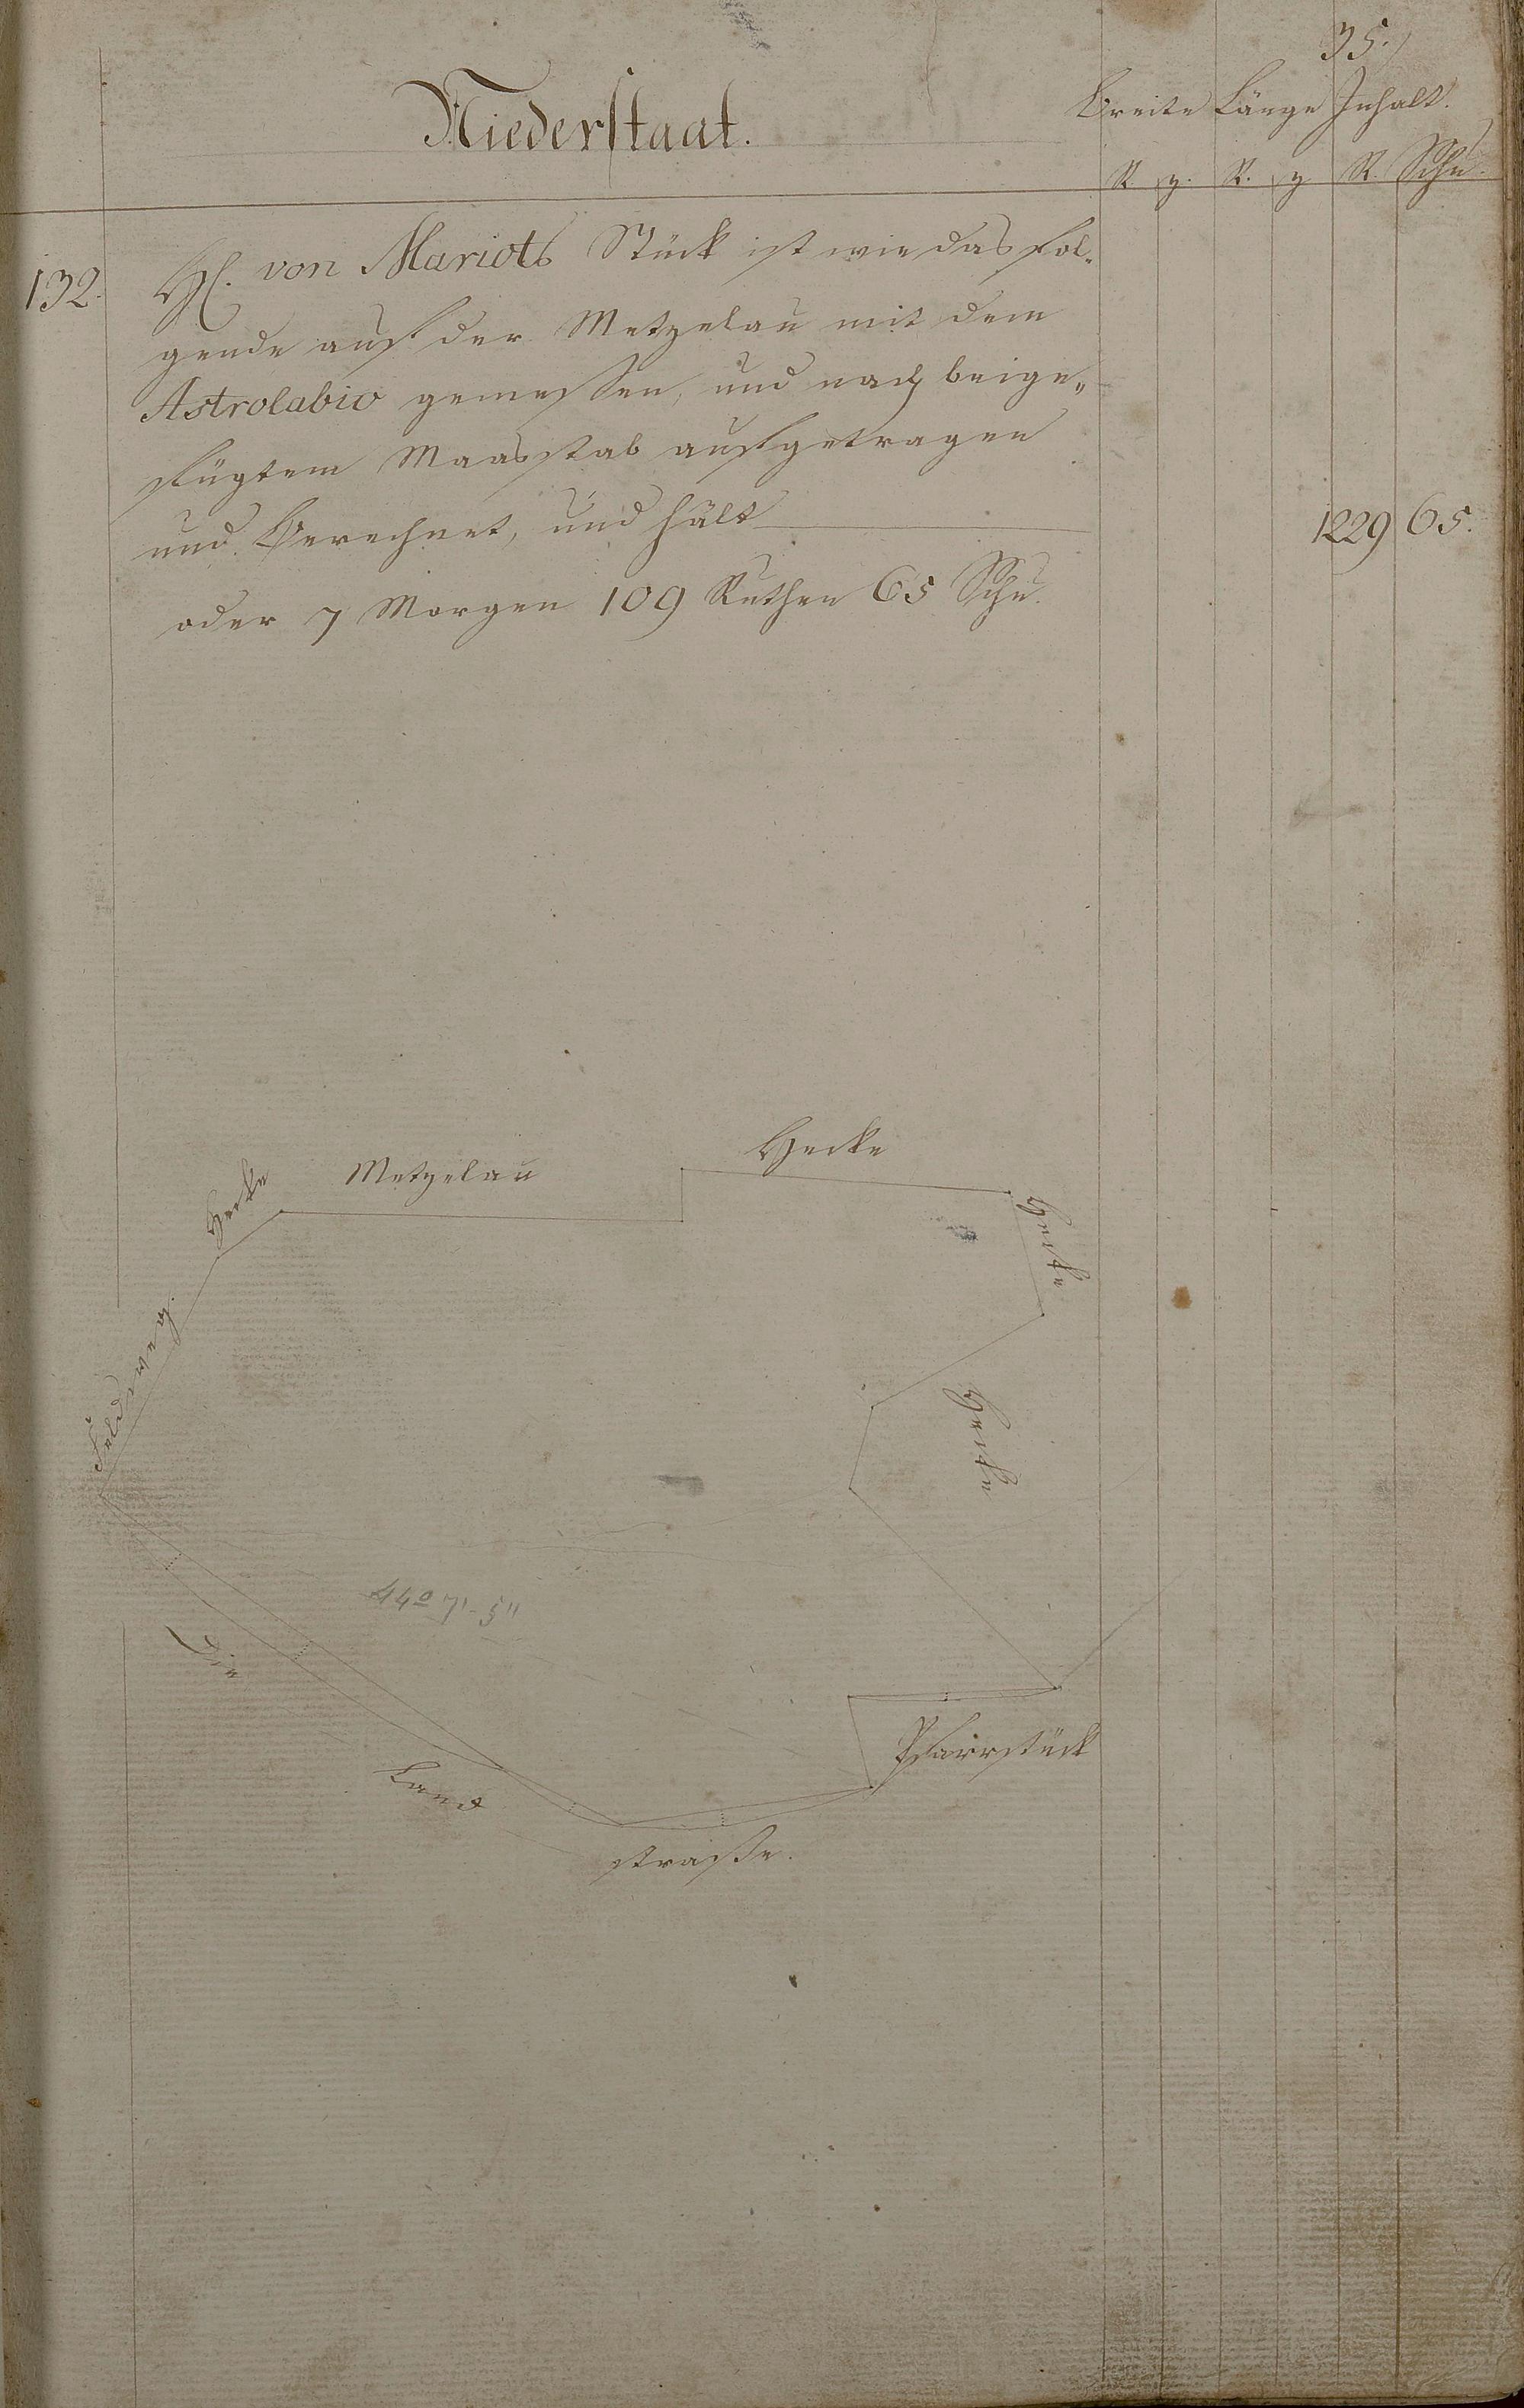 35.
Niederstaat.
Breite Länge Inhalt.
R. z. R. z R. Schu.
132. H. von Mariots Stück ist wie das fol„
gende auf der Metzelau mit dem
Astrolabio gemessen, und nach beige„
fügtem Maasstab aufgetragen
und Berechnet, und hält 1229 65.
oder 7 Morgen 109 Ruthen 65 Schu.
Hecke
Metzelau
Hecke
Hecke
Feldweg.
Hecke
44° 7' 5"
Die
Pfarrstück
Land
strasse.